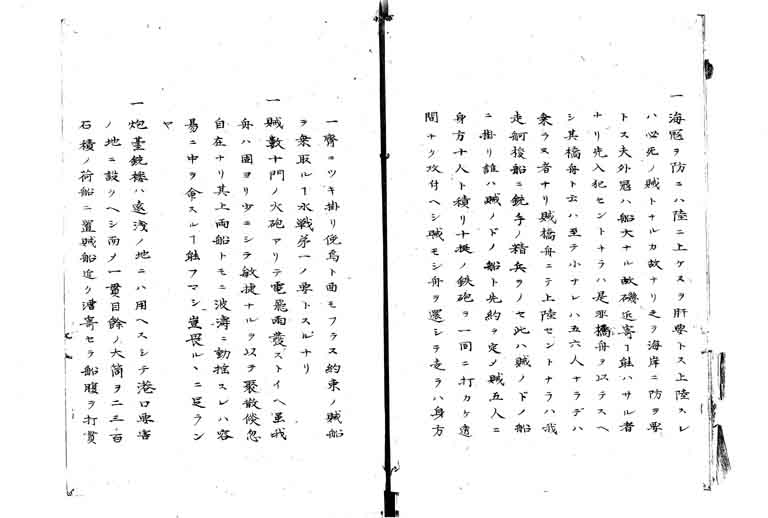 一海冦ヲ防ニハ陸ニ上ケヌヲ肝要トス上陸スレ
ハ必死ノ賊トナルカ故ナリ之ヲ海岸ニ防ヲ要
トス夫外冦ハ船大ナル故磯近寄ヿ能ハサル者
ナリ先入犯セントナラハ是非橋舟ヲ以テスヘ
シ其橋舟ト云ハ至テ小ナレハ五六人ナラデハ
乗ラヌ者ナリ賊橋舟ニテ上陸セントナラハ我
走舸梭船ニ銃手ノ精兵ヲノセ此ハ賊ノドノ船
ニ掛リ誰ハ賊ノドノ船ト先約ヲ定メ賊五人ニ
身方十人ト積リ十挺ノ鉄砲ヲ一同ニ打カケ透
間ナク攻付ヘシ賊モシ舟ヲ還シテ走ラハ身方
一齊ニツキ掛リ侭烏ト面モフラス約束ノ賊船
ヲ乗取ルヿ水戦第一ノ要トスルナリ
一賊数十門ノ火砲アリテ電飛雨發ストイヘ𪜈我
舟ハ固ヨリ少ニシテ敏捷ナルヲ以テ聚散倏忽
自在ナリ其上両船トモニ波濤ニ動揺スレハ容
易ニ中ヲ命スルヿ能フマシ豈畏ルヽニ足ラン
ヤ
一炮臺銃樓ハ遠浅ノ地ニハ用ヘスシテ港口要害
ノ地ニ設クヘシ而メ一貫目餘ノ大筒ヲ二三百
石積ノ荷船ニ置賊船近ク漕寄セラ船腹ヲ打貫